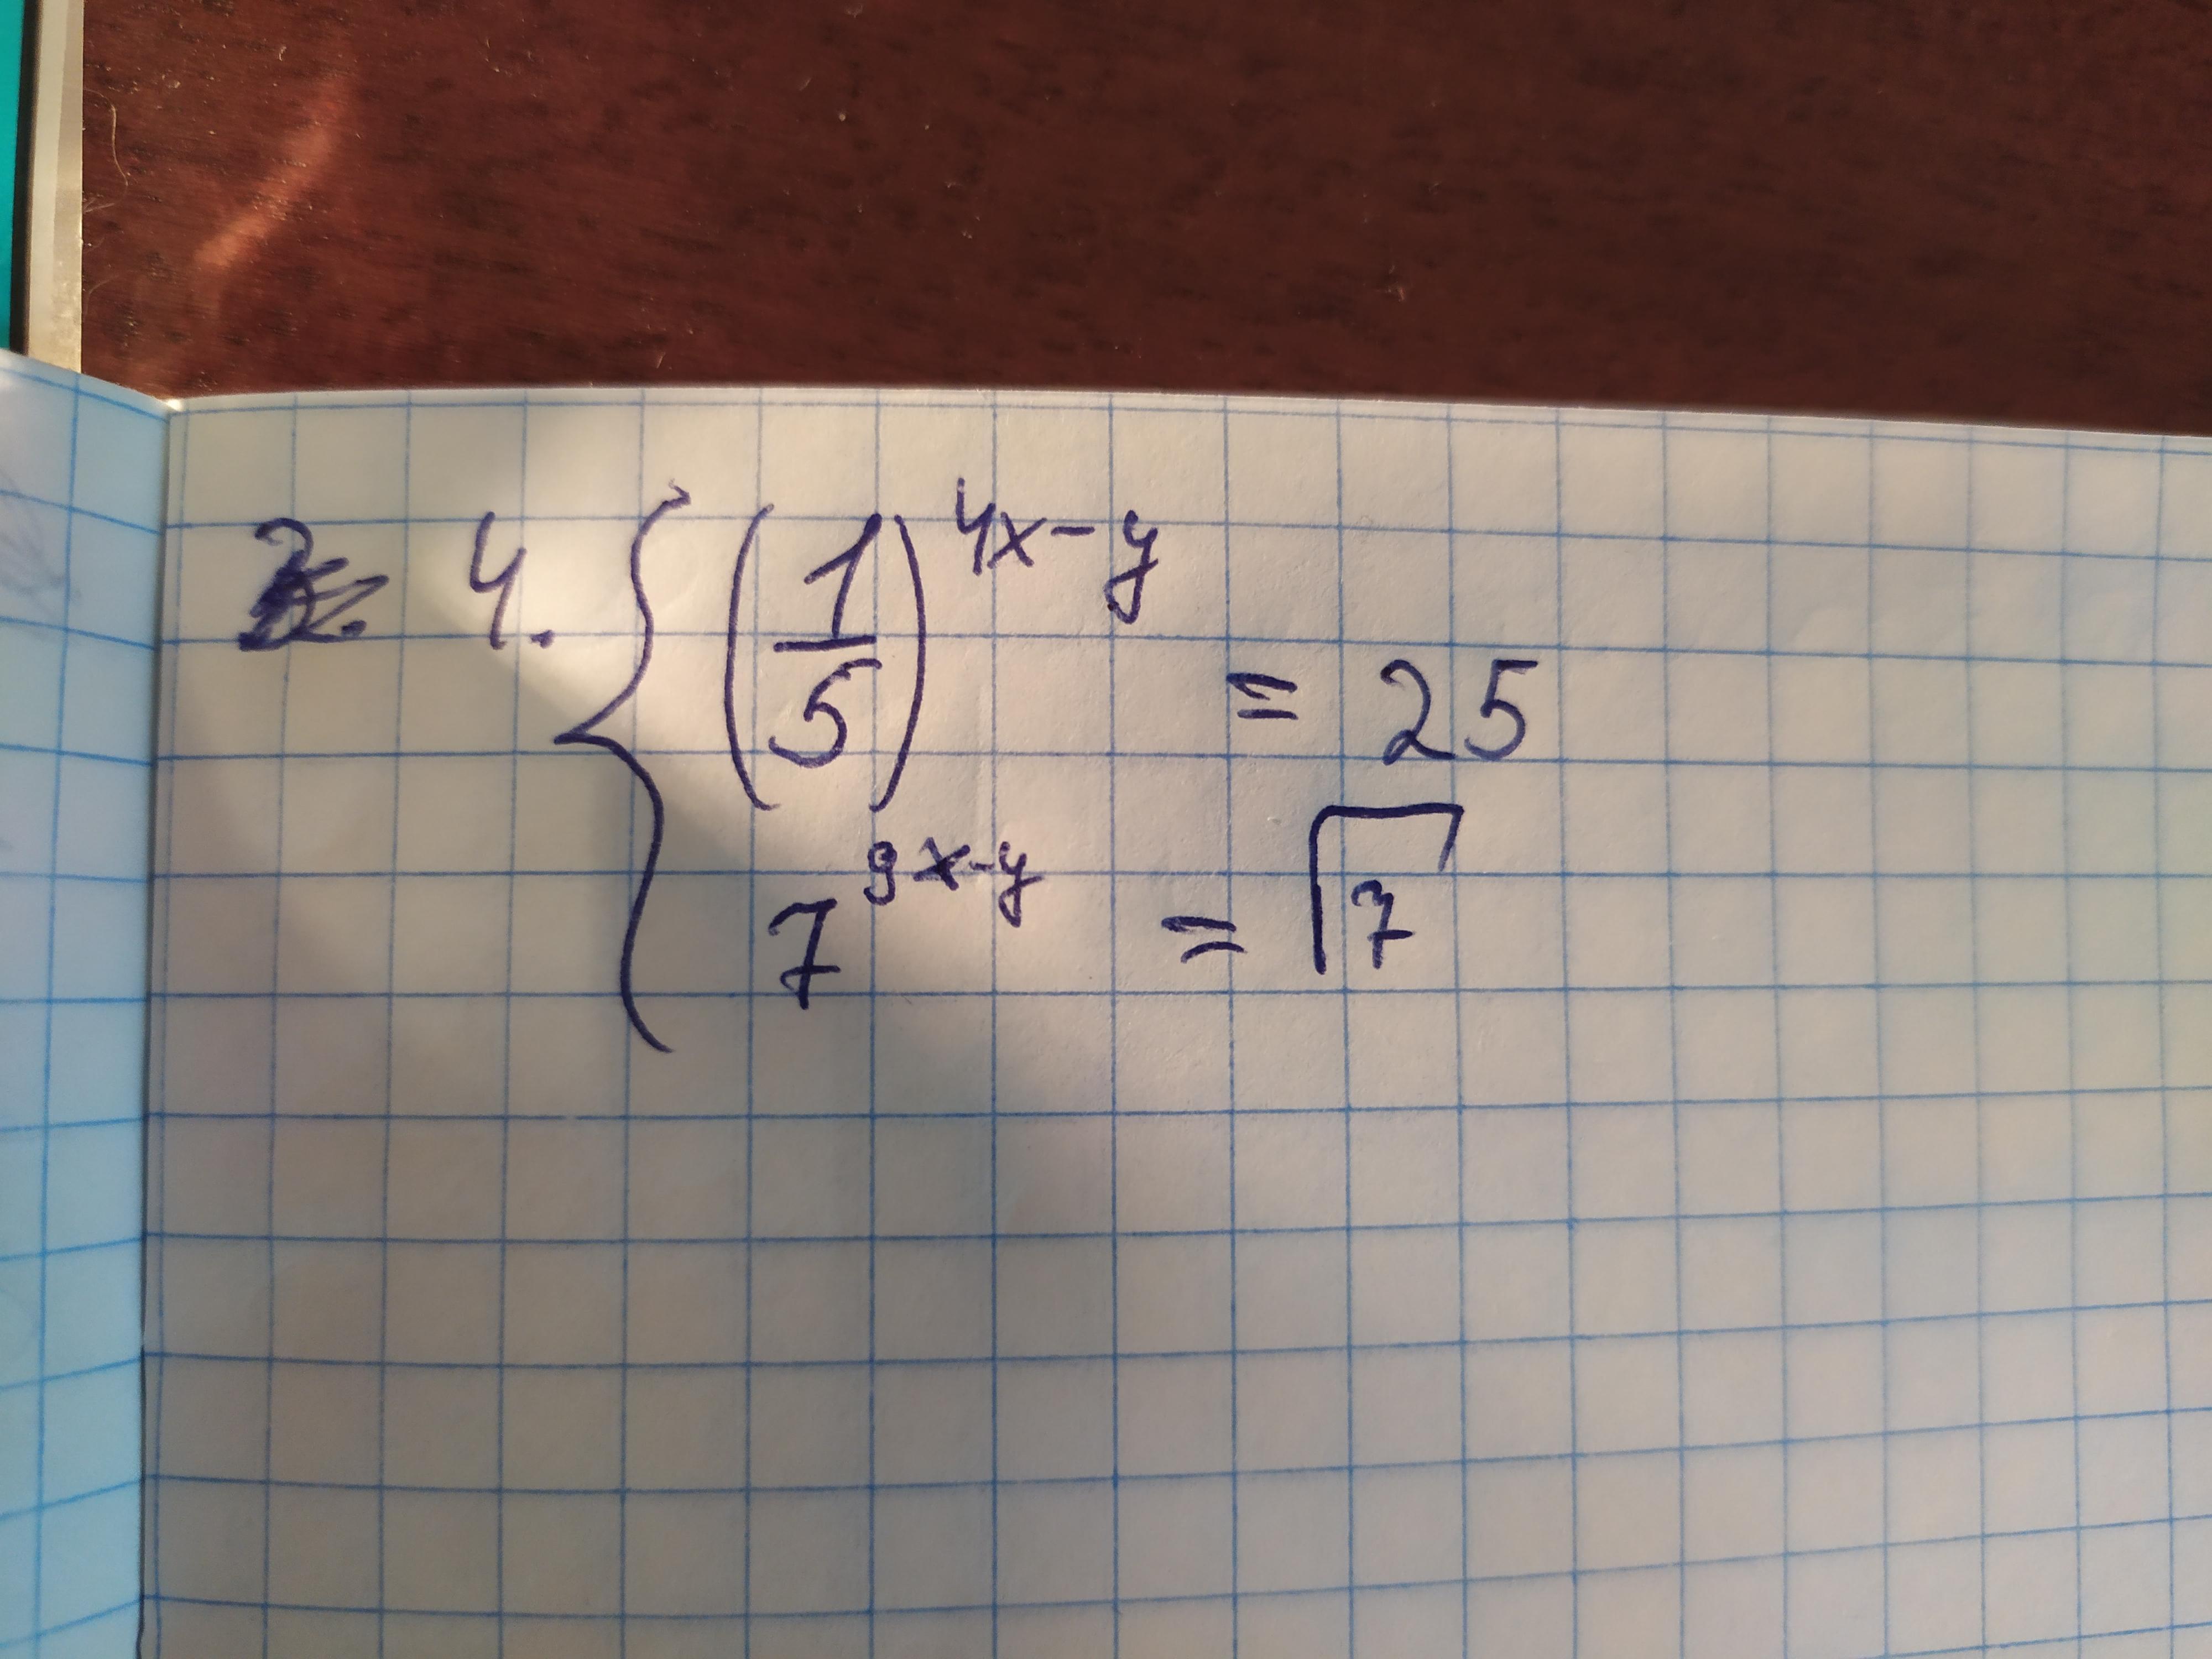 4. { (1/5)^(4x-y) = 25
7^(9x-y) = √7